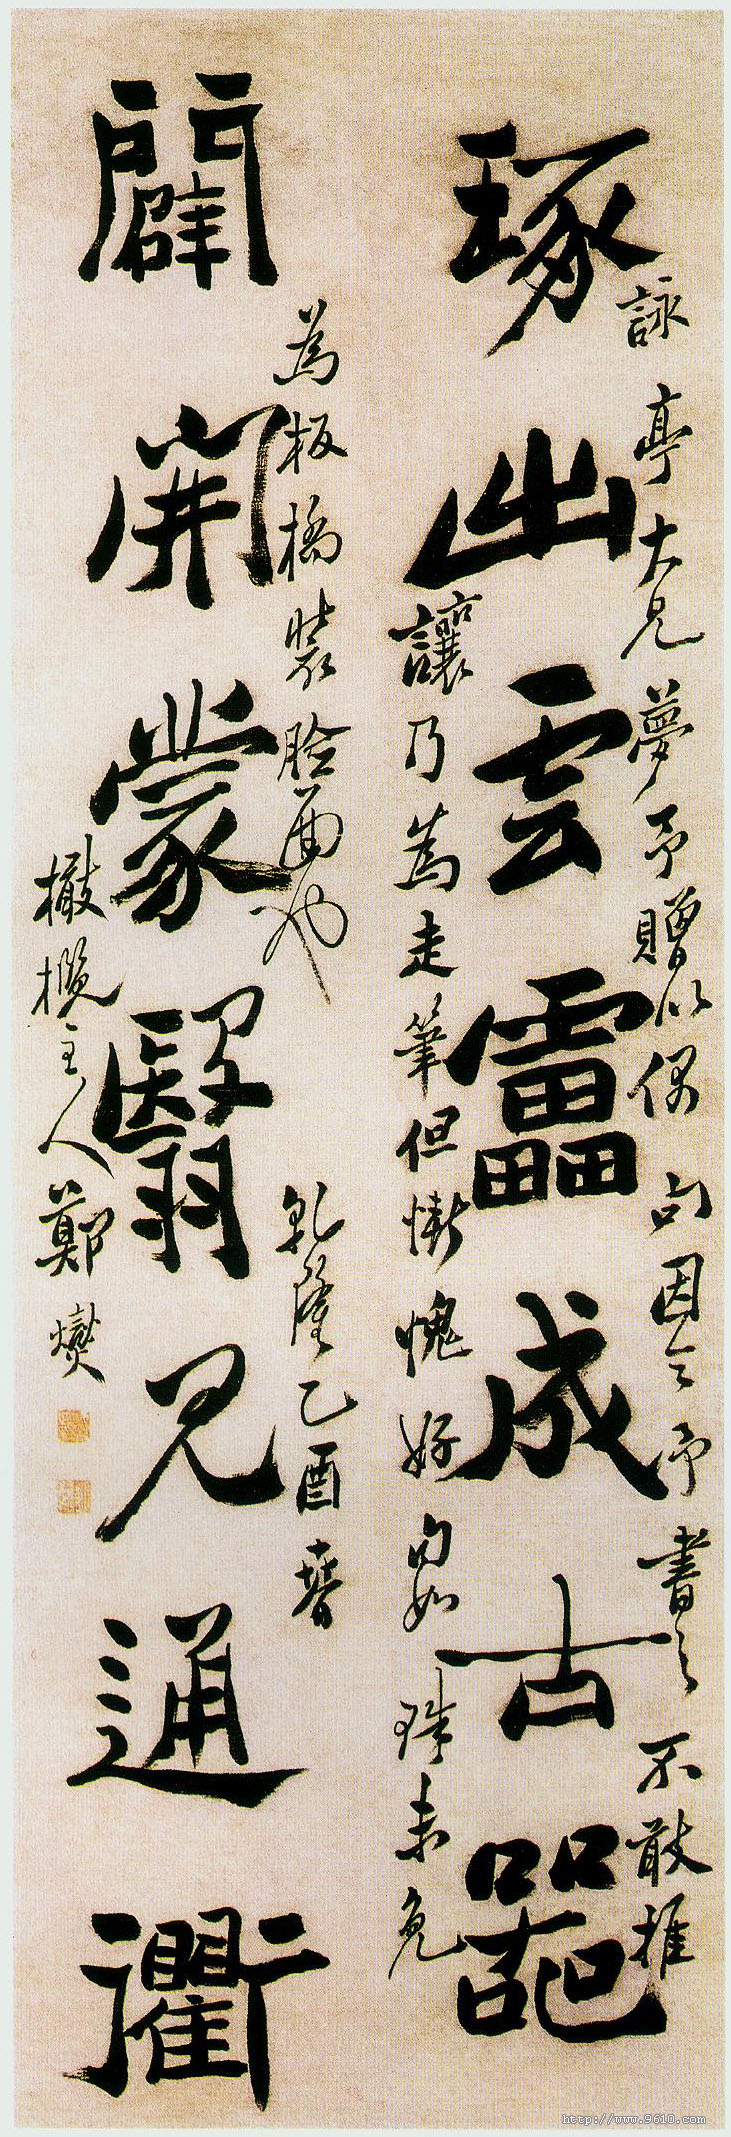 琢出雲靁成古器
闢開蒙翳見通衢
詠亭大兄夢予贈以偶句因令予書之不敢推
讓乃為走筆但慚愧好句如珠未免
為板橋裝臉面也
乾隆乙酉春
橄欖主人鄭燮
http://www.9610.com